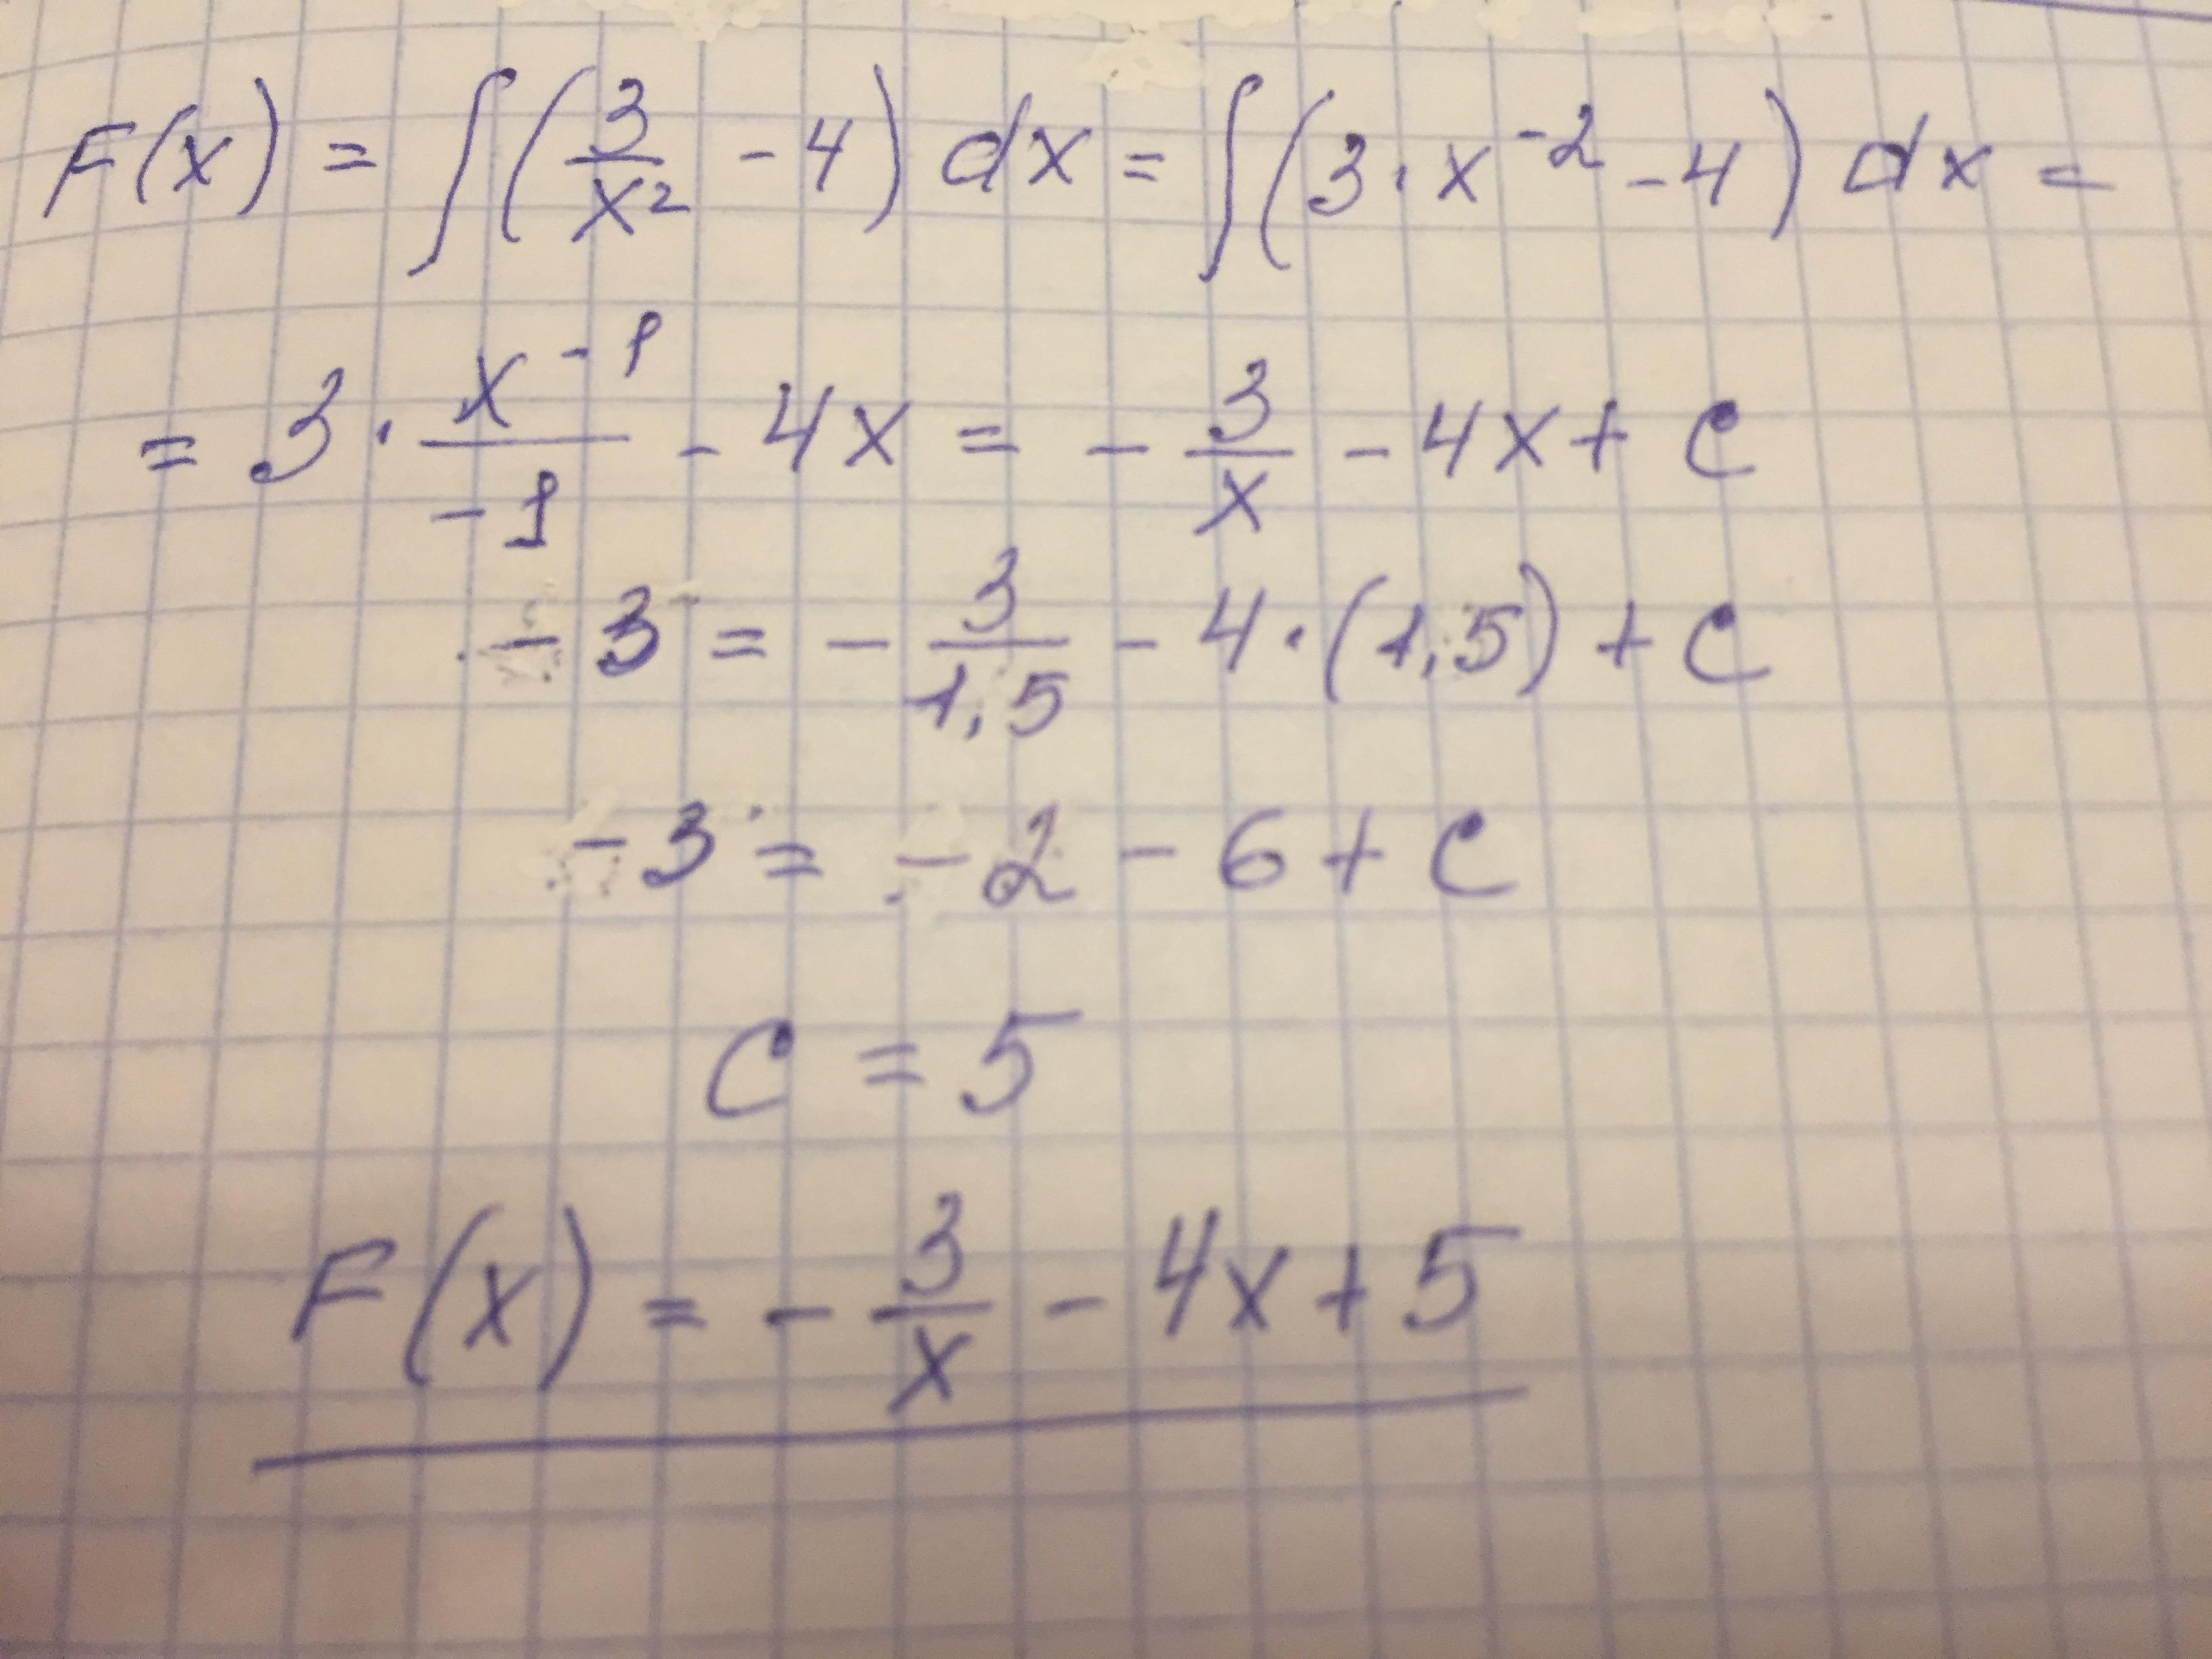 F(x) = ∫(3/x² - 4) dx = ∫(3·x⁻² - 4) dx =
= 3 · x⁻¹/-1 - 4x = - 3/x - 4x + C
-3 = - 3/1,5 - 4·(1,5) + C
-3 = -2 - 6 + C
C = 5
F(x) = - 3/x - 4x + 5